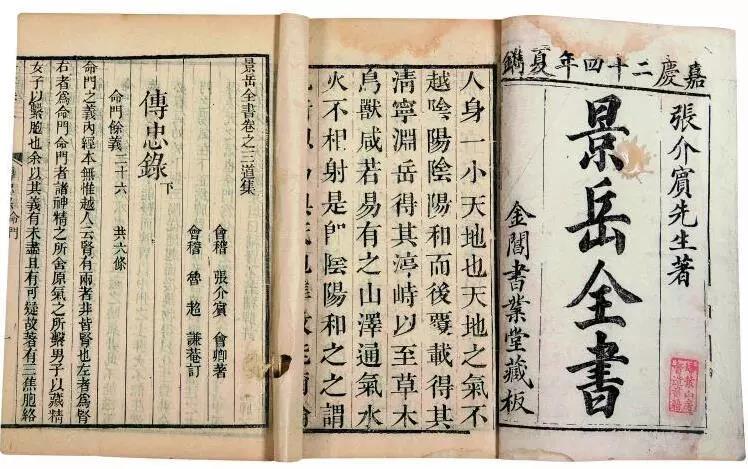 嘉慶二十四年夏鐫
張介賓先生著
景岳全書
金閶書業堂藏板
人身一小天地也天地之氣不
越陰陽陰陽和而後覆載得其
清寧淵岳得其渟峙以至草木
鳥獸咸若易有之山澤通氣水
火不相射是卽陰陽和之之謂
景岳全書卷之三道集
會稽 張介賓 會卿著
會稽 魯超 謙菴訂
傳忠錄 下
命門餘義二十六 共六條
命門之義內經本無惟越人云腎有兩者非皆腎也左者爲腎
右者爲命門命門者諸神精之所舍原氣之所繫男子以藏精
女子以繫胞也余以其義有未盡且有可疑故著有三焦胞絡
命門